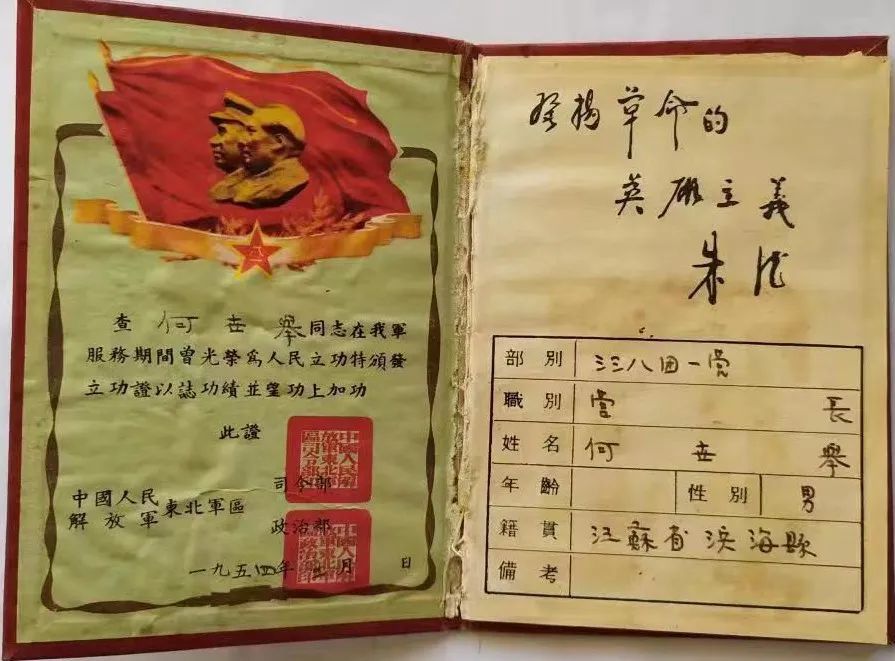 查 何世举同志在我軍
服務期間曾光榮為人民立功特頒發
立功證以誌功績並望功上加功
此證
中國人民
解放軍東北軍區
司令部
政治部
一九五四年 月 日
發揚革命的
英雄主義
朱德
部別 三三八团一营
職別 营長
姓名 何世举
年齡 性別 男
籍貫 江蘇省滨海縣
備考